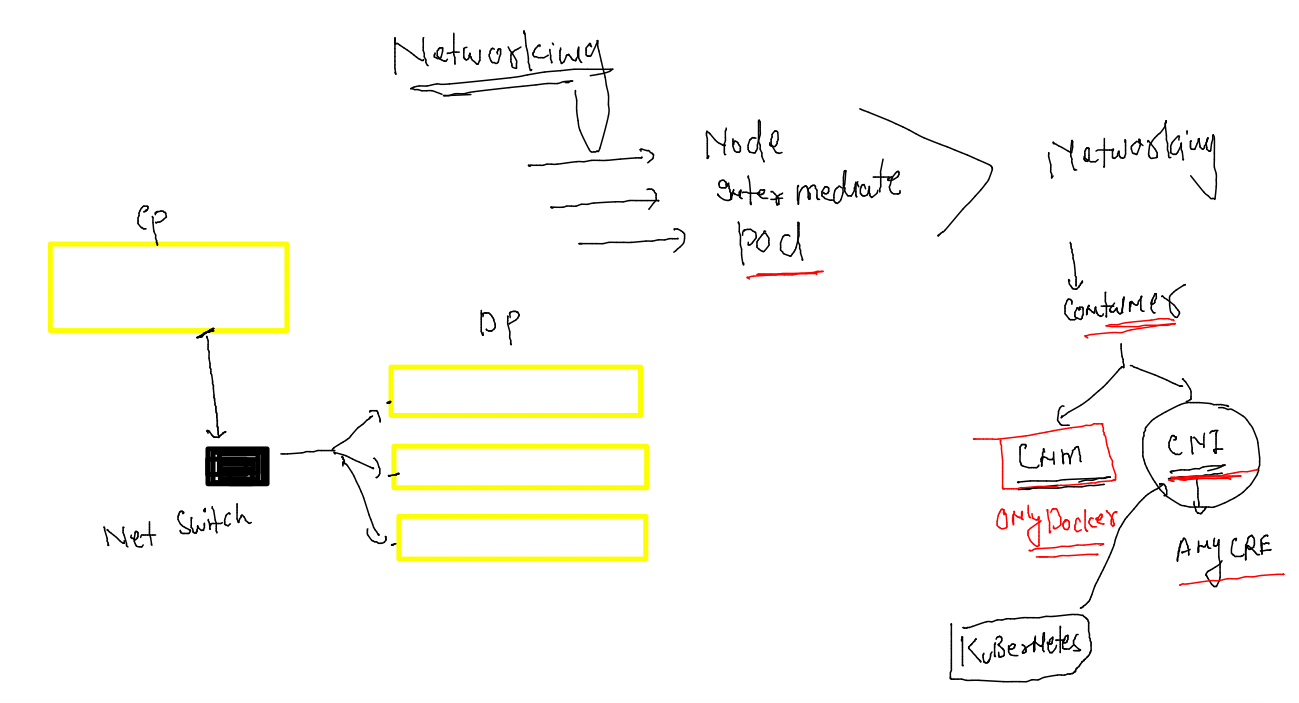 Networking
Node
intermediate
pod
Networking
container
CNM
only Docker
CNI
Any CRE
KuBerNetes
CP
DP
Net Switch